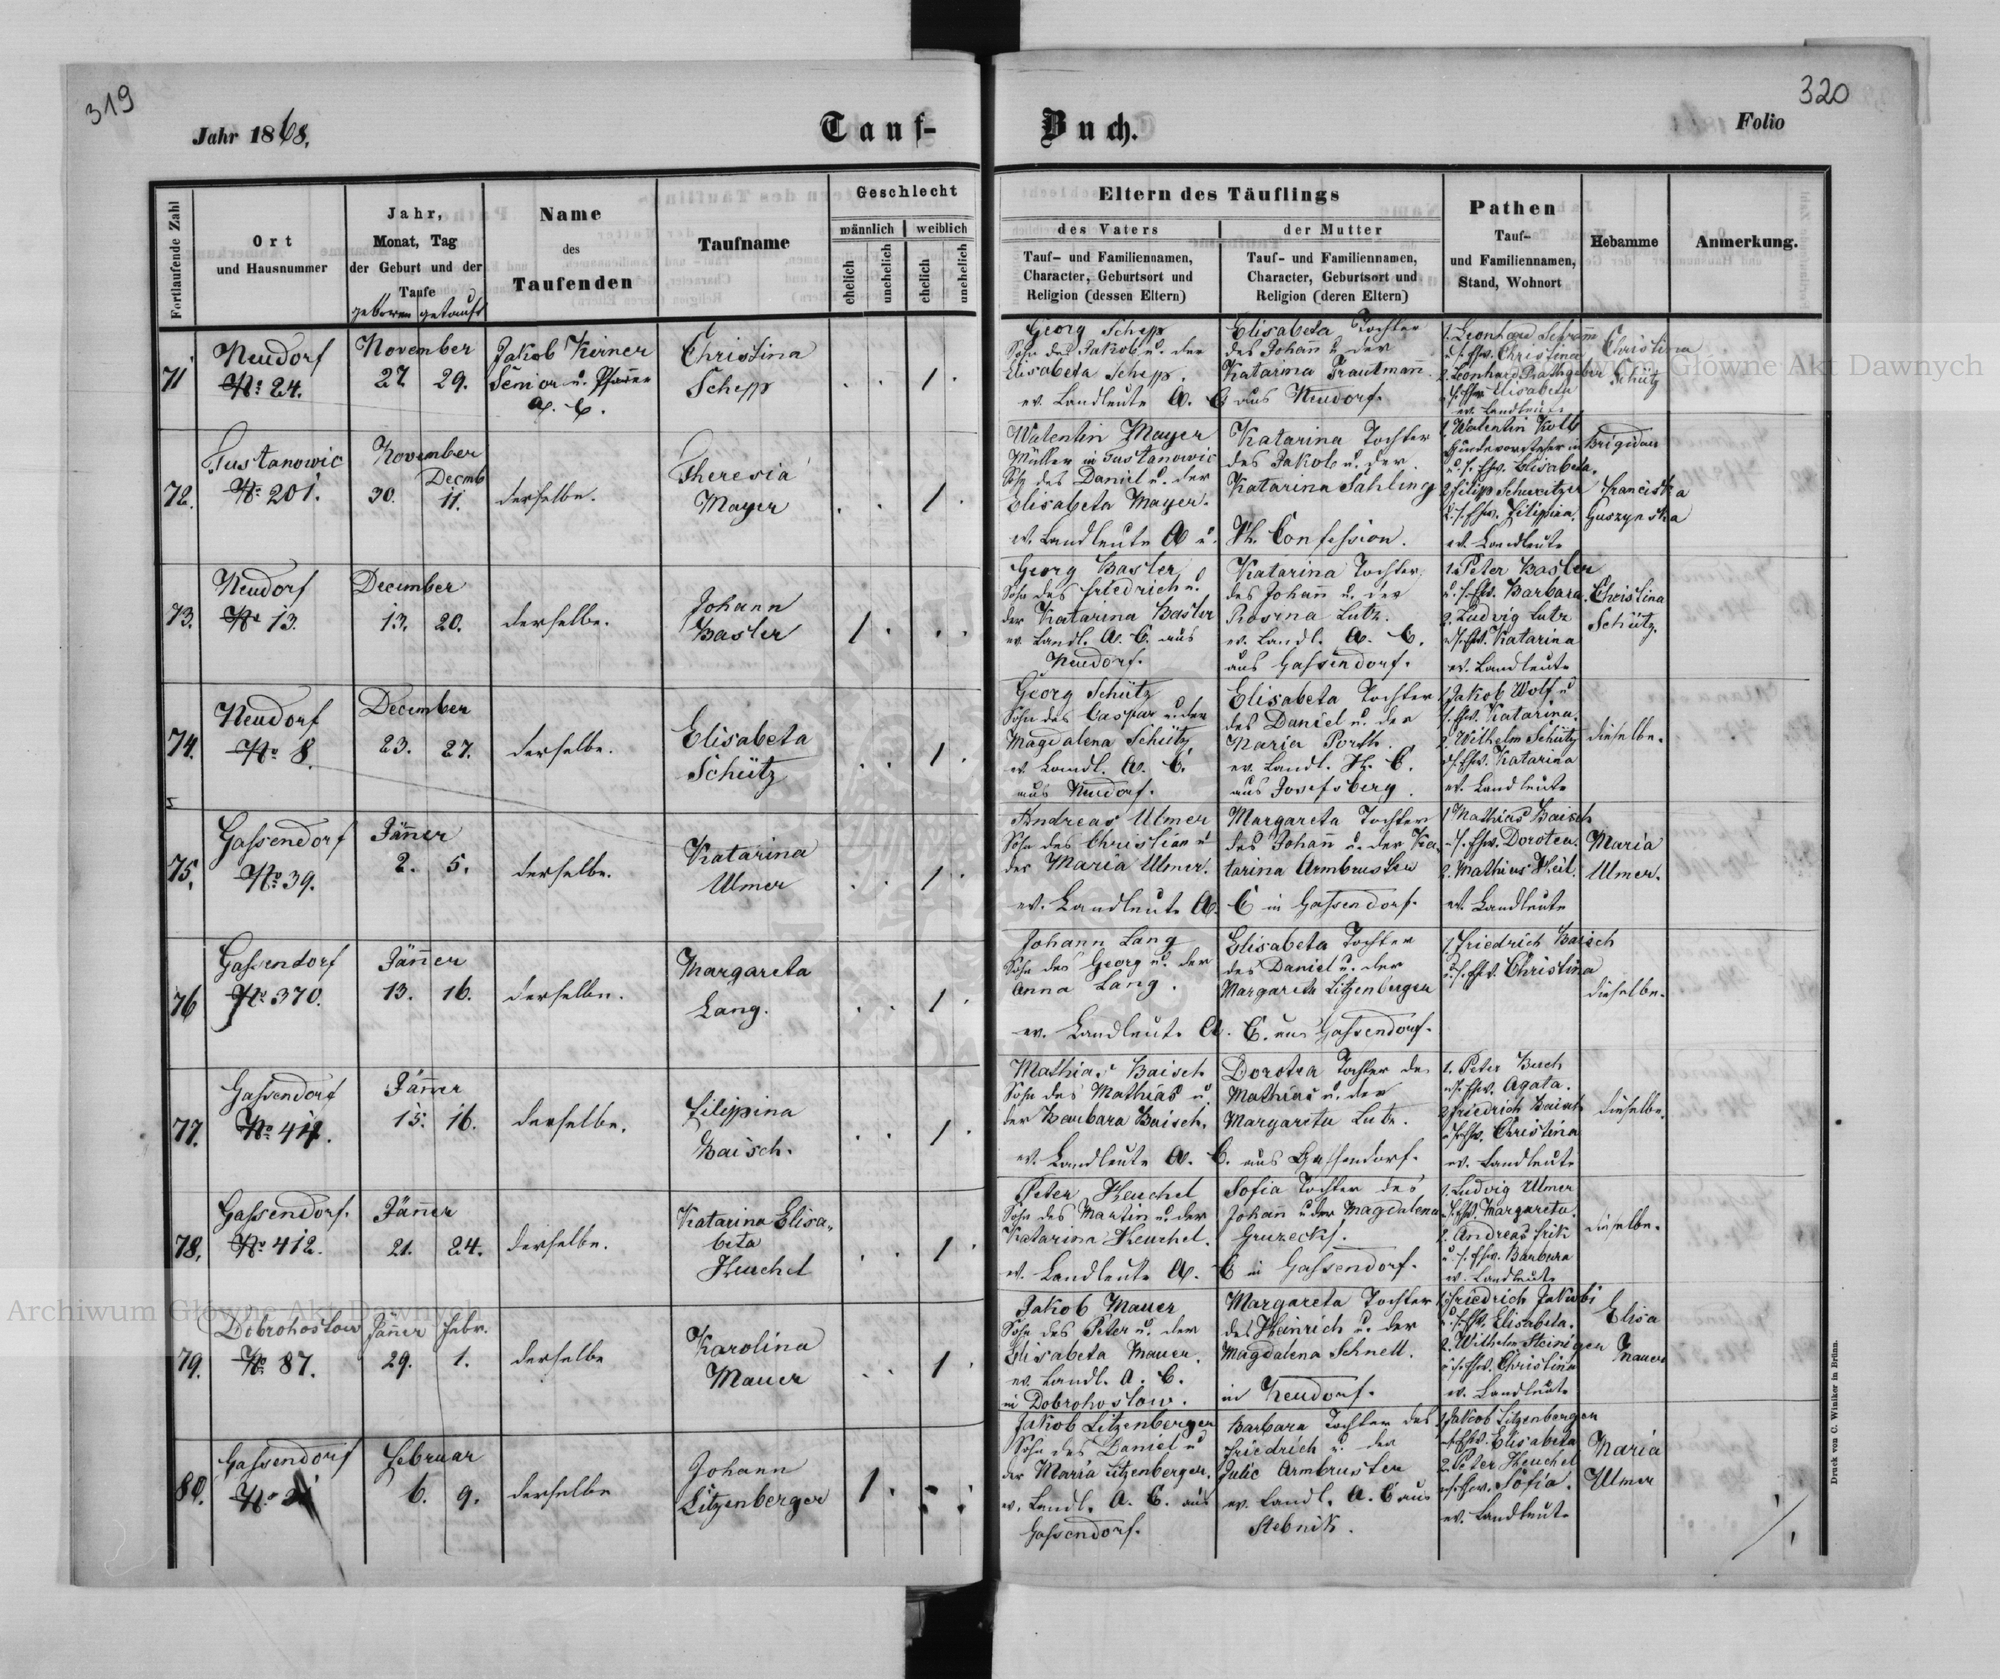 319
320
Jahr 1868.
Tauf-
Buch.
Folio
Fortlaufende Zahl
Ort
und Hausnummer
Jahr,
Monat, Tag
der Geburt und der
Taufe
geboren getauft
Name
des
Taufenden
Taufname
Geschlecht
männlich
weiblich
ehelich
unehelich
ehelich
unehelich
Eltern des Täuflings
des Vaters
Tauf- und Familiennamen,
Character, Geburtsort und
Religion (dessen Eltern)
der Mutter
Tauf- und Familiennamen,
Character, Geburtsort und
Religion (deren Eltern)
Pathen
Tauf-
und Familiennamen,
Stand, Wohnort
Hebamme
Anmerkung.
71
Neudorf
No. 24.
November
27. 29.
Jakob Kerner
Senior u. Pfarrer
A. C.
Christina
Schepp
1
Georg Schepp
Sohn des Jakob u. der
Elisabeta Schepp.
ev. Landleute A. C
Elisabeta Tochter
des Johan̄ u. der
Katarina Trautman̄
aus Neudorf.
1. Leonhard
u. s. Ehw. Christina
2. Leonhard Rathgeber
u. s. Ehw. Elisabeta
ev. Landleute
Christina
Schütz
72.
Tustanowic
No. 201.
November
Decmb
30. 11.
derselbe.
Theresia
Mayer
1
Walentin Mayer
Müller in Tustanowic
Sohn des Daniel u. der
Elisabeta Mayer.
ev. Landleute A u.
Katarina Tochter
des Jakob u. der
Katarina Sahling
H. Confession.
1. Walentin Kolb
u. s. Ehw. Elisabeta.
2. Filipp Schweitzer
u. s. Ehw. Filippina.
ev. Landleute
Franciska
Guszynska
73.
Neudorf
No. 13.
December
13. 20.
derselbe.
Johann
Basler
1
Georg Basler
Sohn des Friedrich u.
der Katarina Basler
ev. Landl. A. C. aus
Neudorf.
Katarina Tochter
des Johan̄ u. der
Rosina Lutz.
ev. Landl. A. C.
aus Gassendorf.
1. Peter Basler
u. s. Ehw. Barbara.
2. Ludvig Lutz
u. s. Ehw. Katarina
ev. Landleute
Christina
Schütz.
74.
Neudorf
No. 8.
December
23. 27.
derselbe.
Elisabeta
Schütz
1
Georg Schütz
Sohn des Caspar u. der
Magdalena Schütz
ev. Landl. A. C.
aus Neudorf.
Elisabeta Tochter
des Daniel u. der
Maria Porth.
ev. Landl. H. C.
aus Josefsberg.
1. Jakob Wolf u
s. Ehw. Katarina.
2. Wilhelm Schütz
u. s. Ehw. Katarina
ev. Landleute
dieselbe.
75.
Gassendorf
No. 39.
Jän̄er
2. 5.
derselbe.
Katarina
Ulmer
1
Andreas Ulmer
Sohn des Christian u
der Maria Ulmer.
ev. Landleute A.
Margareta Tochter
des Johan̄ u. der Ka-
tarina Armbruster
C in Gassendorf.
1 Mathias Baisch
u. s. Ehw. Dorotea.
2. Mathias Heil.
ev. Landleute
Maria
Ulmer.
76
Gassendorf
No. 370.
Jän̄er
13. 16.
derselbe.
Margareta
Lang.
1
Johann Lang
Sohn des Georg u. der
Anna Lang.
ev. Landleute A.
Elisabeta Tochter
des Daniel u. der
Margareta Litzenberger
C. aus Gassendorf.
1. Friedrich Baisch
u. s. Ehw. Christina
dieselbe.
77.
Gassendorf
Jän̄er
15. 16.
derselbe.
Filippina
Baisch.
1
Mathias Baisch
Sohn des Mathias u.
der Barbara Baisch.
ev. Landleute A.
Dorotea Tochter des
Mathias u. der
Margareta Lutz.
C. aus Gassendorf.
1. Peter Busch
u. s. Ehw. Agata.
2. Friedrich Baisch
u. s. Ehw. Christina
ev. Landleute
dieselbe.
78.
Gassendorf.
No. 412.
Jän̄er
21. 24.
derselbe.
Katarina Elisa-
beta
Heuchel
1
Peter Heuchel
Sohn des Martin u. der
Katarina Heuchel.
ev. Landleute A.
Sofia Tochter des
Johan̄ u. der Magdalena
C in Gassendorf.
1. Ludvig Ulmer
u. s. Ehw. Margareta.
2. Andreas Frik
u. s. Ehw. Barbara
ev. Landleute
dieselbe.
79.
Dobrohostow
No. 87.
Jän̄er Febr.
29. 1.
derselbe
Karolina
Mauer
1
Jakob Mauer
Sohn des Peter u. der
Elisabeta Mauer.
ev. Landl. A. C.
in Dobrohostow.
Margareta Tochter
des Heinrich u. der
Magdalena Schnell.
in Neudorf.
1. Friedrich Jakobi
u. s. Ehw. Elisabeta.
2. Wilhelm Steiniger
u. s. Ehw. Christina
ev. Landleute
Elisa
Mauer
80.
Gassendorf
No.
Februar
6. 9.
derselbe
Johann
Litzenberger
1
Jakob Litzenberger
Sohn des Daniel u
der Maria Litzenberger.
ev. Landl. A. C. aus
Gassendorf.
Barbara Tochter des
Friedrich u. der
Julie Armbruster
ev. Landl. A. C aus
Stebnik.
1. Jakob Litzenberger
u. s. Ehw. Elisabeta
2. Peter Heuchel
u. s. Ehw. Sofia.
ev. Landleute
Maria
Ulmer
Druck von C. Winiker in Brünn.
Archiwum Główne Akt Dawnych
Główne Akt Dawnych